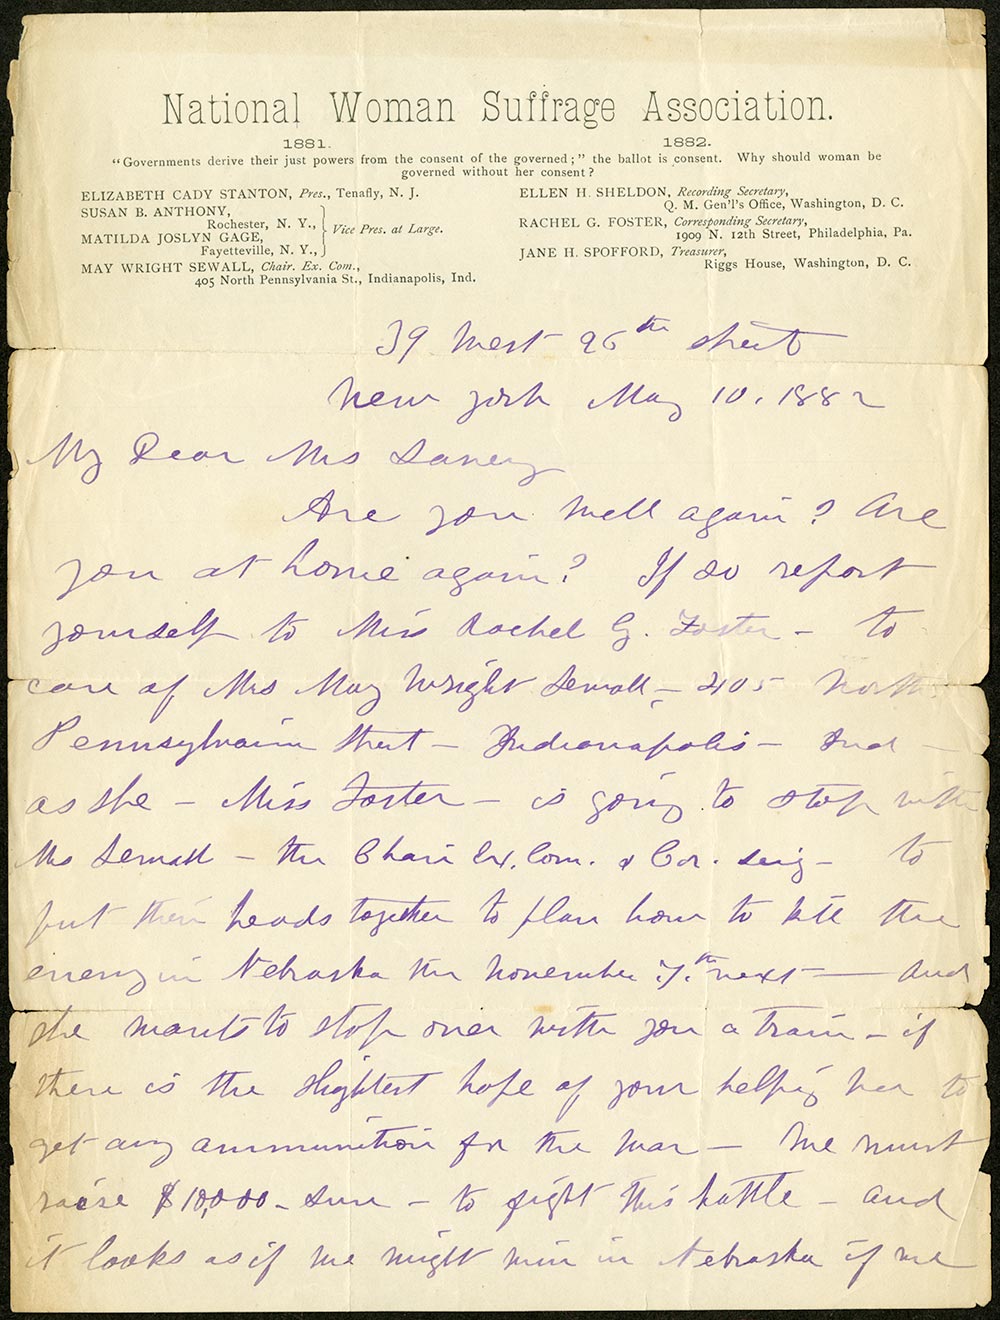 National Woman Suffrage Association.
1881. 1882.
"Governments derive their just powers from the consent of the governed;" the ballot is consent. Why should woman be
governed without her consent?
ELIZABETH CADY STANTON, Pres., Tenafly, N. J.
SUSAN B. ANTHONY,
Rochester, N. Y.,
MATILDA JOSLYN GAGE,
Fayetteville, N. Y.,
Vice Pres. at Large.
MAY WRIGHT SEWALL, Chair. Ex. Com.,
405 North Pennsylvania St., Indianapolis, Ind.
ELLEN H. SHELDON, Recording Secretary,
Q. M. Gen'l's Office, Washington, D. C.
RACHEL G. FOSTER, Corresponding Secretary,
1909 N. 12th Street, Philadelphia, Pa.
JANE H. SPOFFORD, Treasurer,
Riggs House, Washington, D. C.
39 West 26th street
New York May 10. 1882
My Dear Mrs
Are you well again? Are
you at home again? If so report
yourself to Miss Rachel G. Foster - to
care of Mrs May Wright Sewall - 405 North
Pennsylvania Street - Indianapolis - Ind -
as she - Miss Foster - is going to stop with
Mrs Sewall - the Chair Ex. Com. & Cor. - to
put their heads together to plan how to kill the
enemy in Nebraska the November 7th next - and
she wants to stop over with you a train - if
there is the slightest hope of your helping her to
get any ammunition for the war - We must
raise $10,000 - sure - to fight this battle - and
it looks as if we might win in Nebraska if we